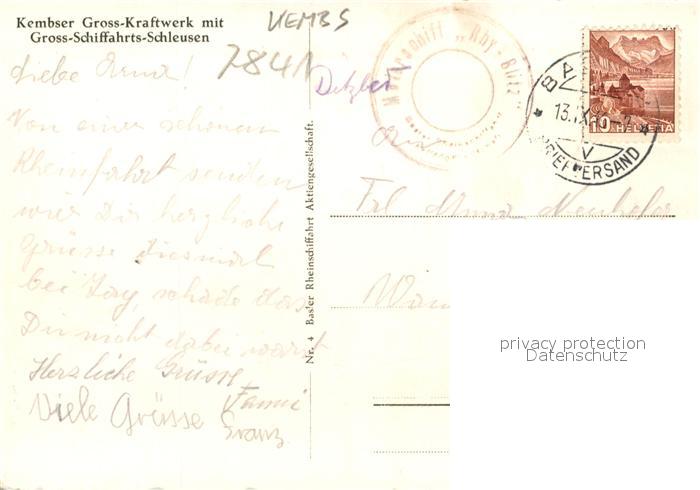 Kembser Gross-Kraftwerk mit
Gross-Schiffahrts-Schleusen
KEMBS
7841
Liebe Anna!
Von einer schönen
Rheinfahrt senden
wir Dir herzliche
Grüsse diesmal
bei Tag, schade das
Du nicht dabei warst
Herzliche Grüsse
Fanni
Viele Grüsse
Franz
Nr. 4 Basler Rheinschiffahrt Aktiengesellschaft.
Motorschiff "Rhy-Blitz"
BA
13.IX
V
BRIEFVERSAND
10 HELVETIA
Frl Anna
privacy protection
Datenschutz